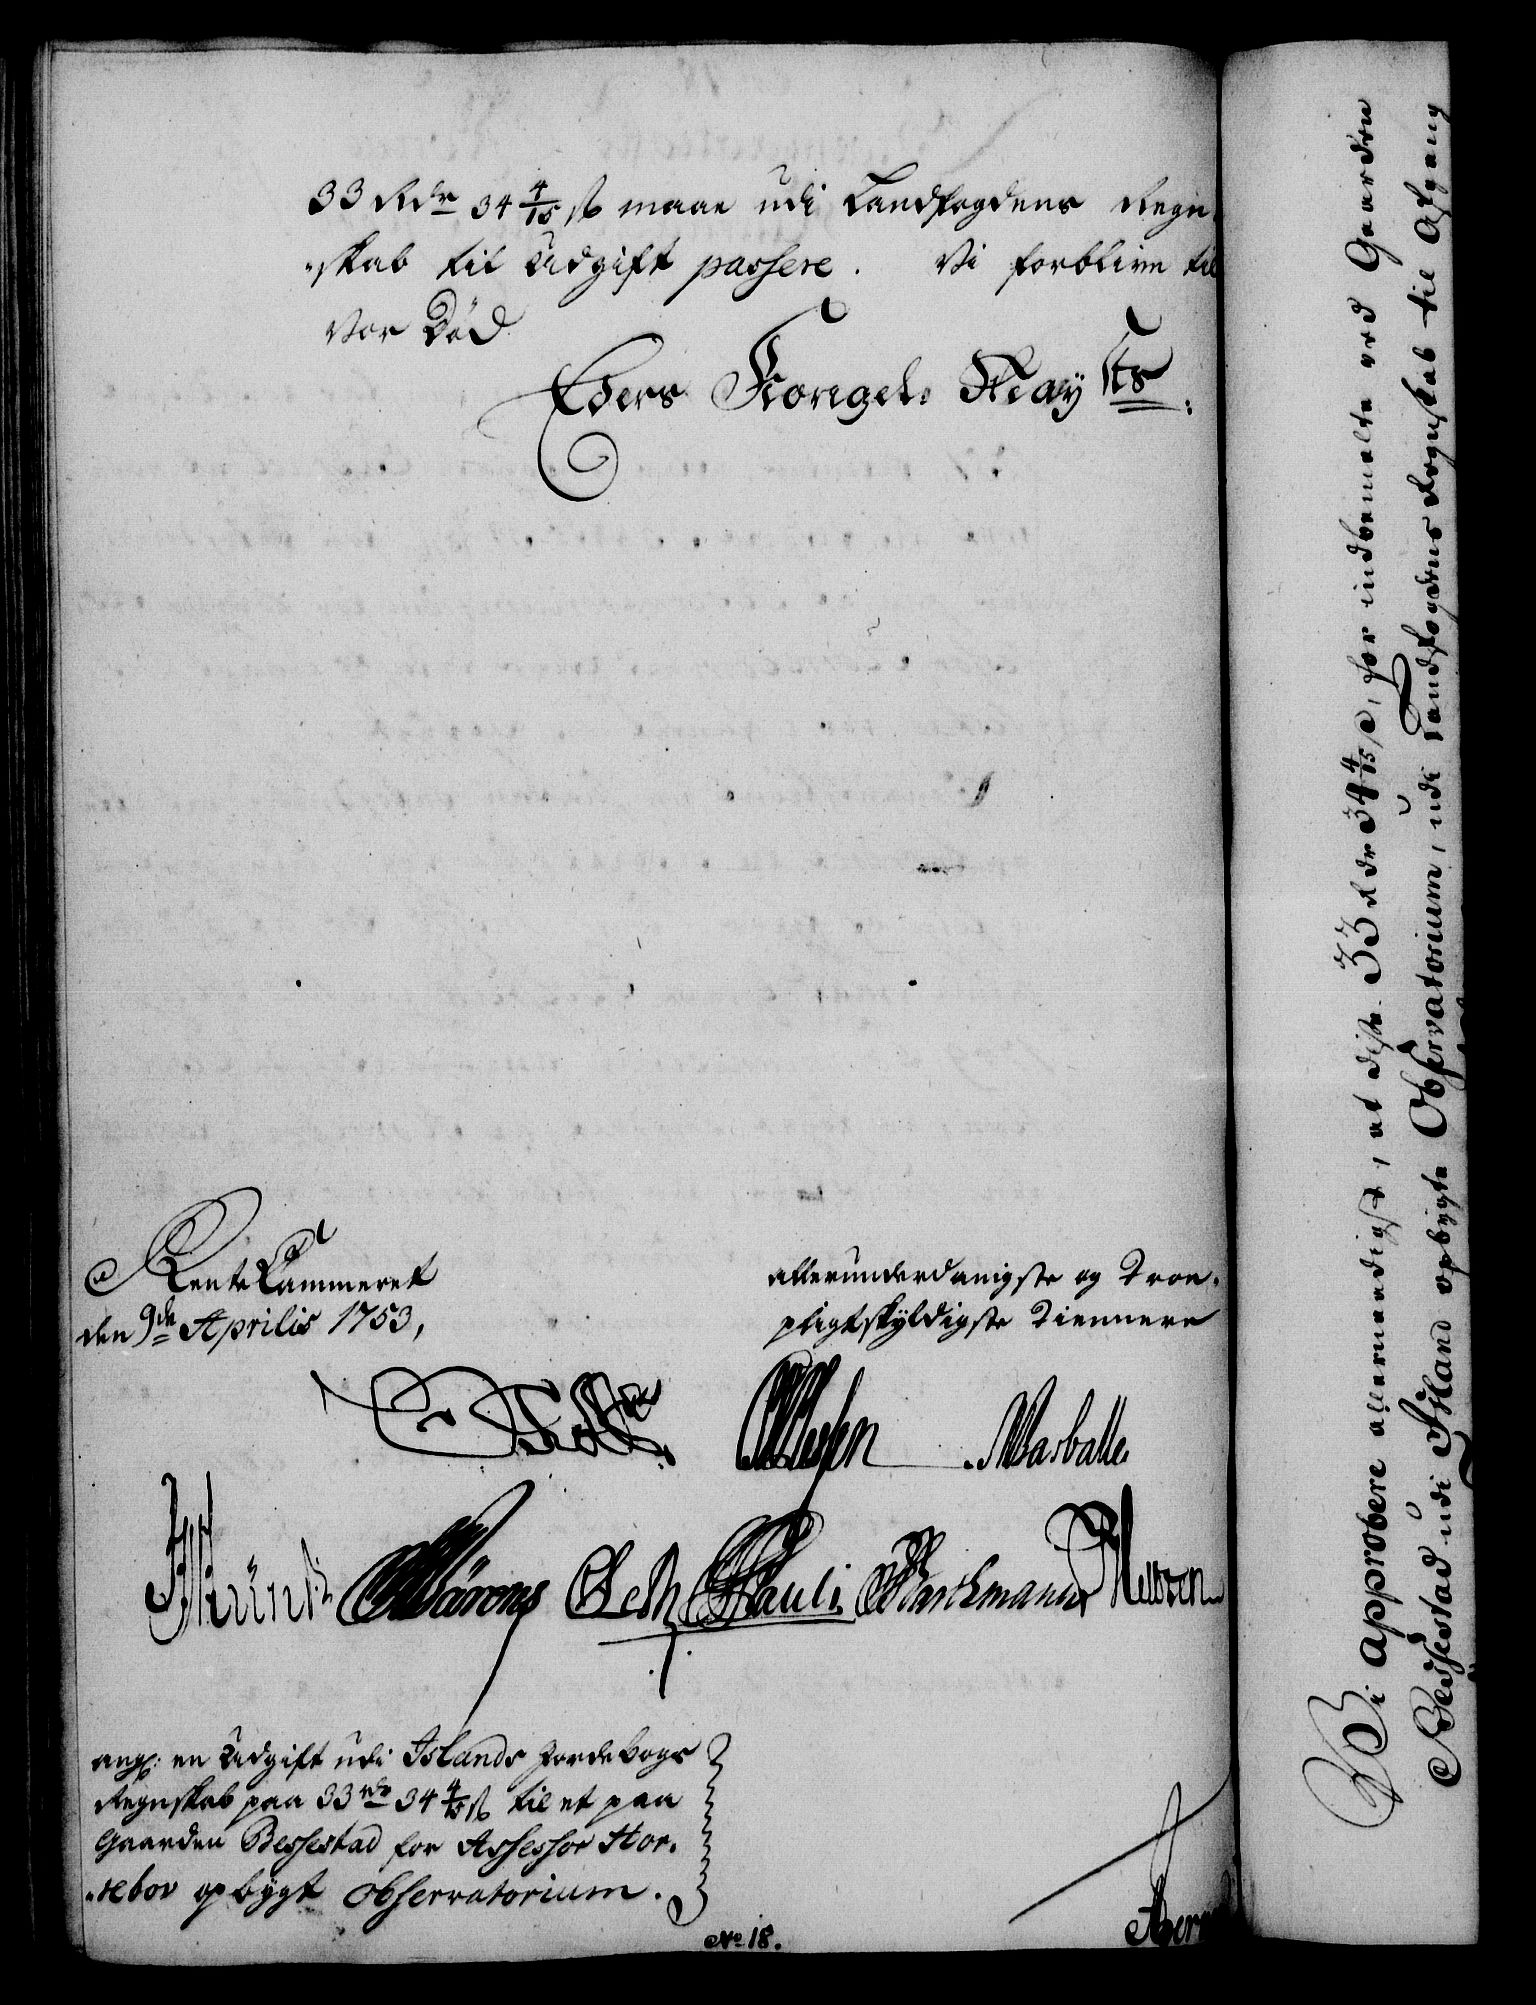 33 Rdr 34 4/15 ß maae udi Landfogdens Regn-
„skab til Udgift passere. Vi forblive til
vor Død
Eders Kongel. Mayts.
RenteKammeret
den 9de Aprilis 1753,
allerunderdanigste og Troe-
pligtskyldigste Tiennere
Marballe.
Pauli Barckmann
angl: en Udgift udi Islands Jordebogs
Regnskab paa 33 rdr 34 4/15 ß til et paa
Gaarden Bessestad for Assessor Hor-
„rebov opbÿgt Observatorium.
No 18.
Vi approbere allernaadigst, at disse 33 Rdr 34 4/15 ß, for indbemelte ved Gaarden
Bessestad udi Island opbÿgte Observatorium, udi Landfogdens Regnskab til Afgang